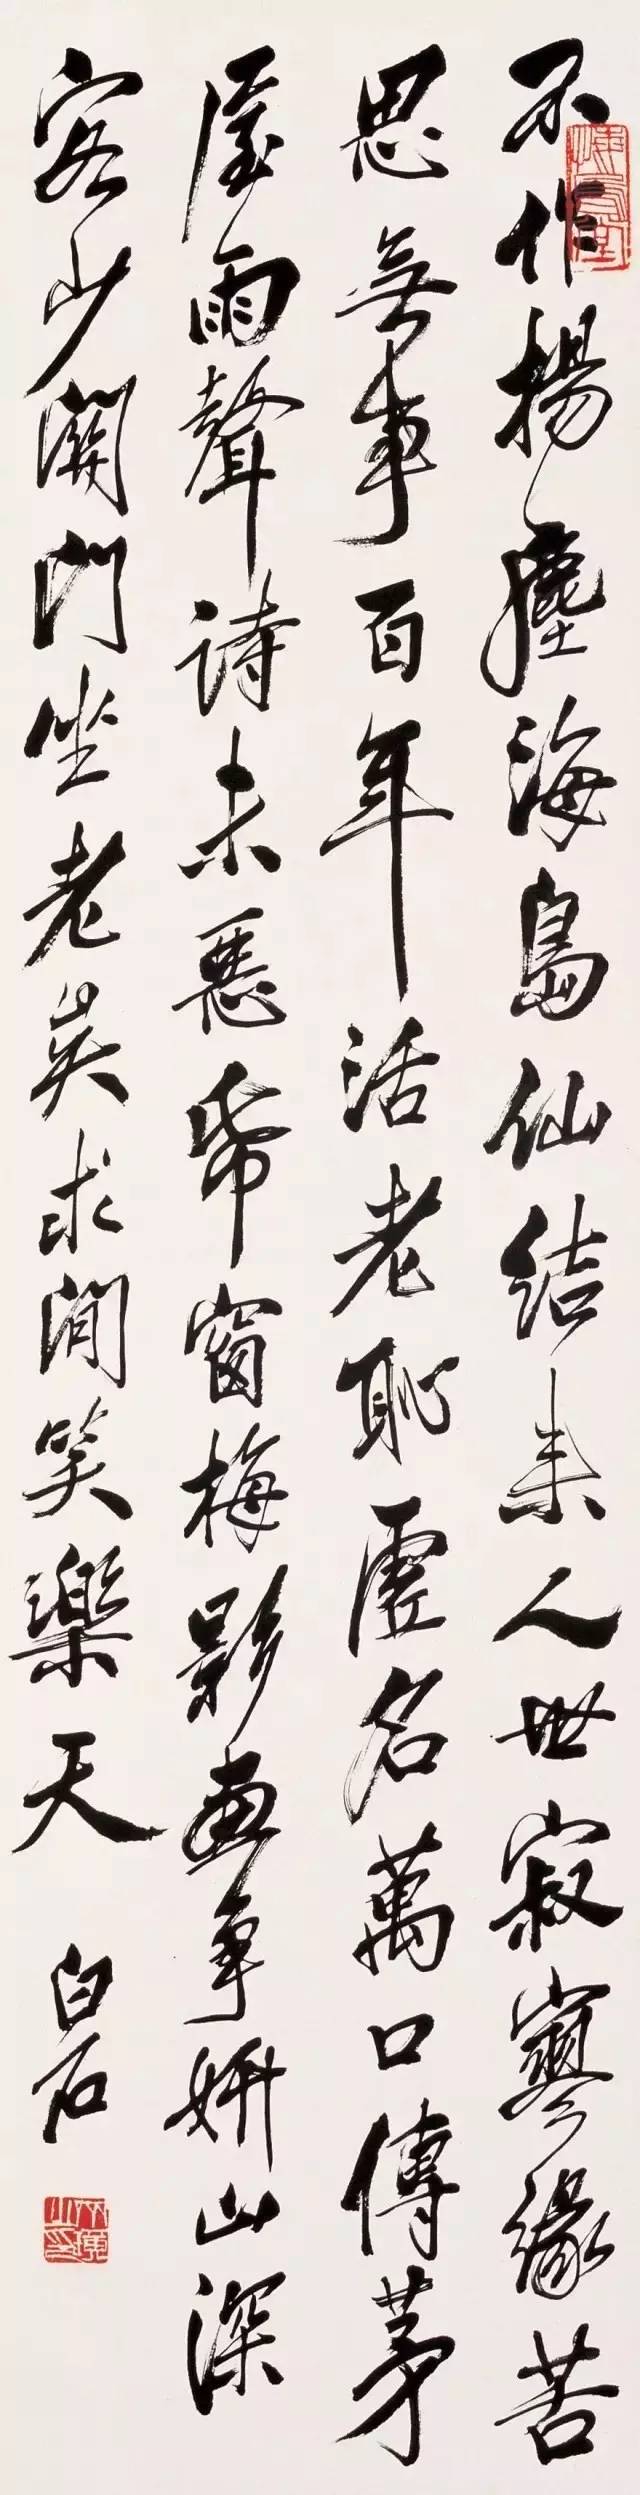 不作揚塵海島仙結來人世寂寥緣苦
思無事百年活老恥虛名萬口傳茅
屋雨聲詩未惡帋窗梅影畫事妍山深
客少關門坐老矣求閒笑樂天
白石